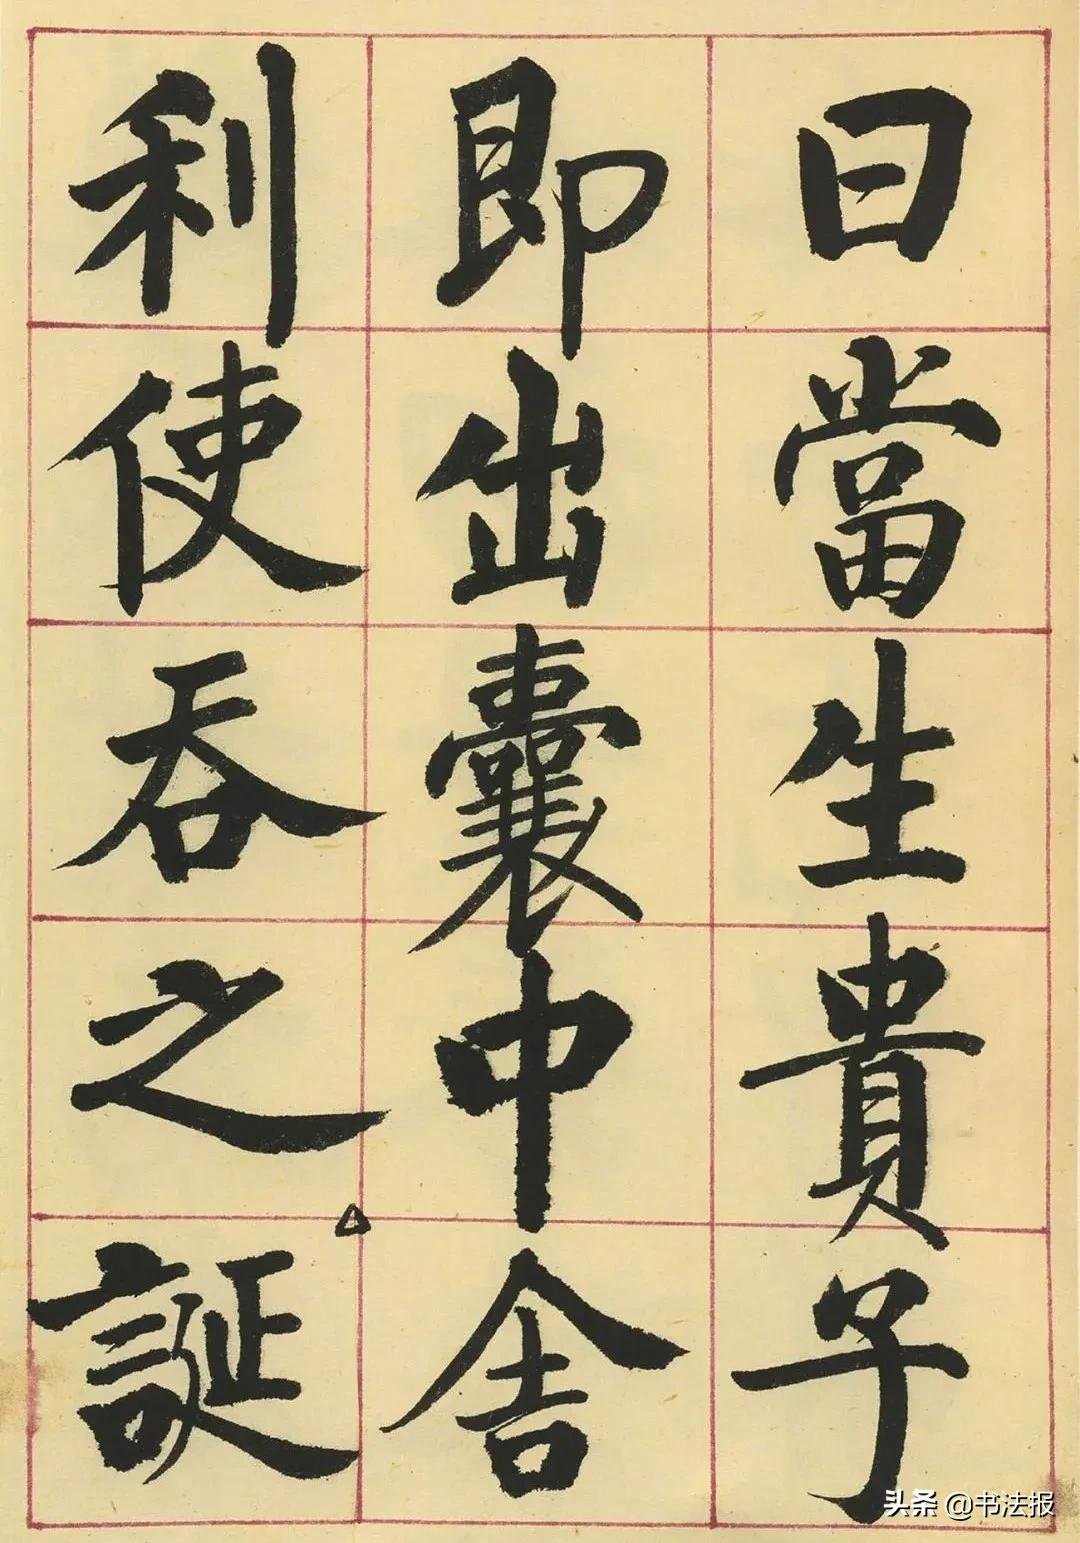 曰當生貴子
即出囊中舍
利使吞之誕
头条 @书法报